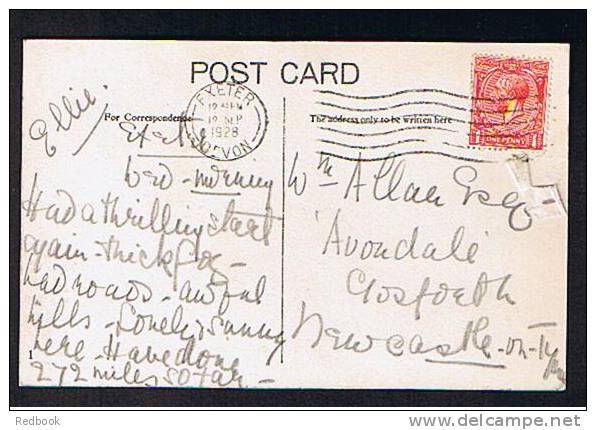 POST CARD
For Correspondence
The address only to be written here
EXETER
12
19 SEP
1928
DEVON
ONE PENNY
Ellie.
Wed - morning
Had a thrilling start
again - thick fog -
bad roads - awful
hills - Lovely & sunny
here - Have done
272 miles so far -
Wm Allan Esq -
'Avondale'
Gosforth
Newcastle-on-Tyne
1
Redbook
www.delcampe.net